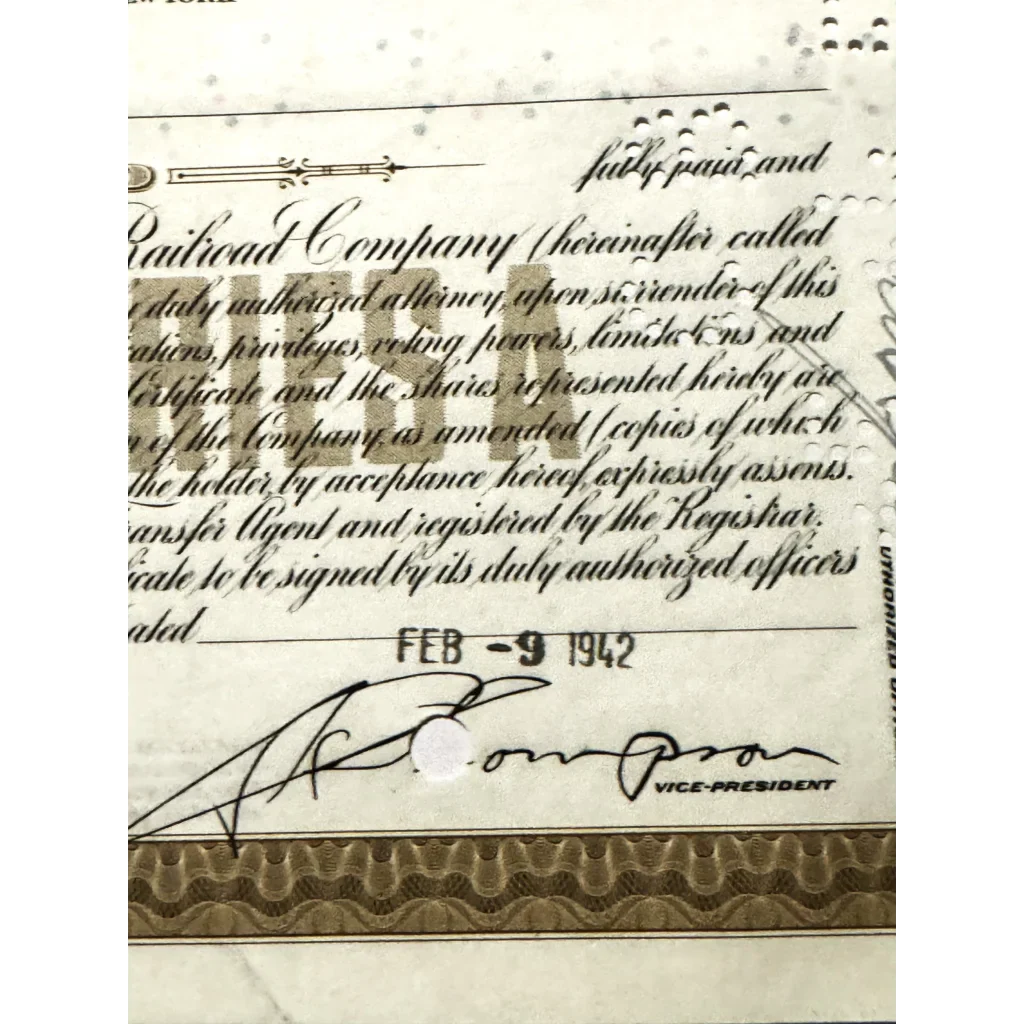 NEW YORK
fully paid and
Railroad Company (hereinafter called
duly authorized attorney, upon surrender of this
privileges, voting powers, limitations and
Certificate and the shares represented hereby are
of the Company, as amended (copies of which
the holder, by acceptance hereof, expressly assents.
Transfer Agent and registered by the Registrar.
to be signed by its duly authorized officers
FEB -9 1942
VICE-PRESIDENT
SERIES A
AUTHORIZED